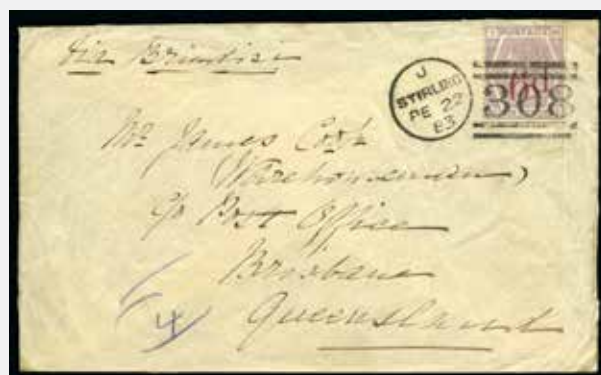 Via Brindisi
POSTAGE
6d
308
J
STIRLING
PE 22
83
Mr James Cook
Warehouseman
C/o Post Office
Brisbane
Queensland
4